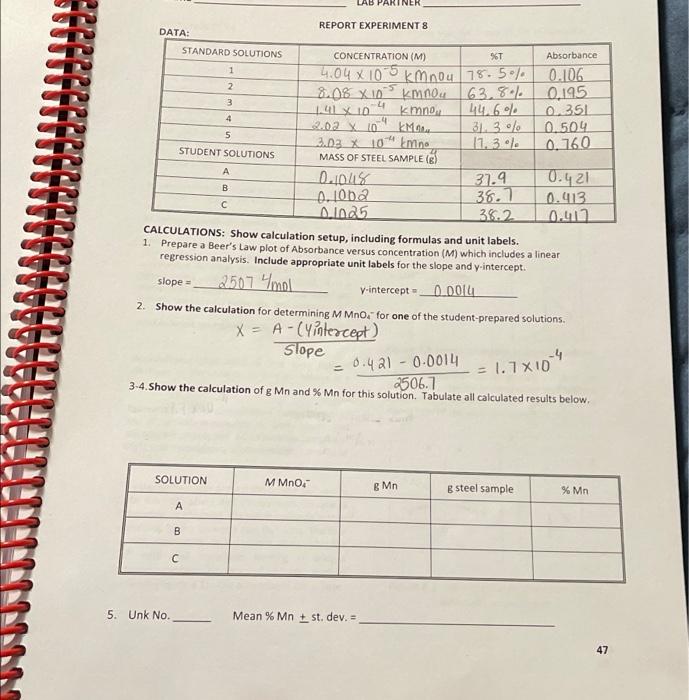 LAB PARTNER
REPORT EXPERIMENT 8
DATA:
STANDARD SOLUTIONS CONCENTRATION (M) %T Absorbance
1 4.04 x 10⁻⁵ KMnO4 78.5% 0.106
2 8.08 x 10⁻⁵ KMnO4 63.8% 0.195
3 1.41 x 10⁻⁴ KMnO4 44.6% 0.351
4 2.02 x 10⁻⁴ 31.3% 0.504
5 3.03 x 10⁻⁴ 17.3% 0.760
STUDENT SOLUTIONS MASS OF STEEL SAMPLE (g)
A 0.1048 37.9 0.421
B 38.7 0.413
C 0.1025 38.2 0.417
CALCULATIONS: Show calculation setup, including formulas and unit labels.
1. Prepare a Beer's Law plot of Absorbance versus concentration (M) which includes a linear
regression analysis. Include appropriate unit labels for the slope and y-intercept.
slope = 2507 L/mol y-intercept = 0.0014
2. Show the calculation for determining M MnO₄⁻ for one of the student-prepared solutions.
X = A - (Yintercept)
Slope
= 0.421 - 0.0014 = 1.7 x 10⁻⁴
2506.7
3-4. Show the calculation of g Mn and % Mn for this solution. Tabulate all calculated results below.
SOLUTION M MnO₄⁻ g Mn g steel sample % Mn
A
B
C
5. Unk No. Mean % Mn ± st. dev. =
47